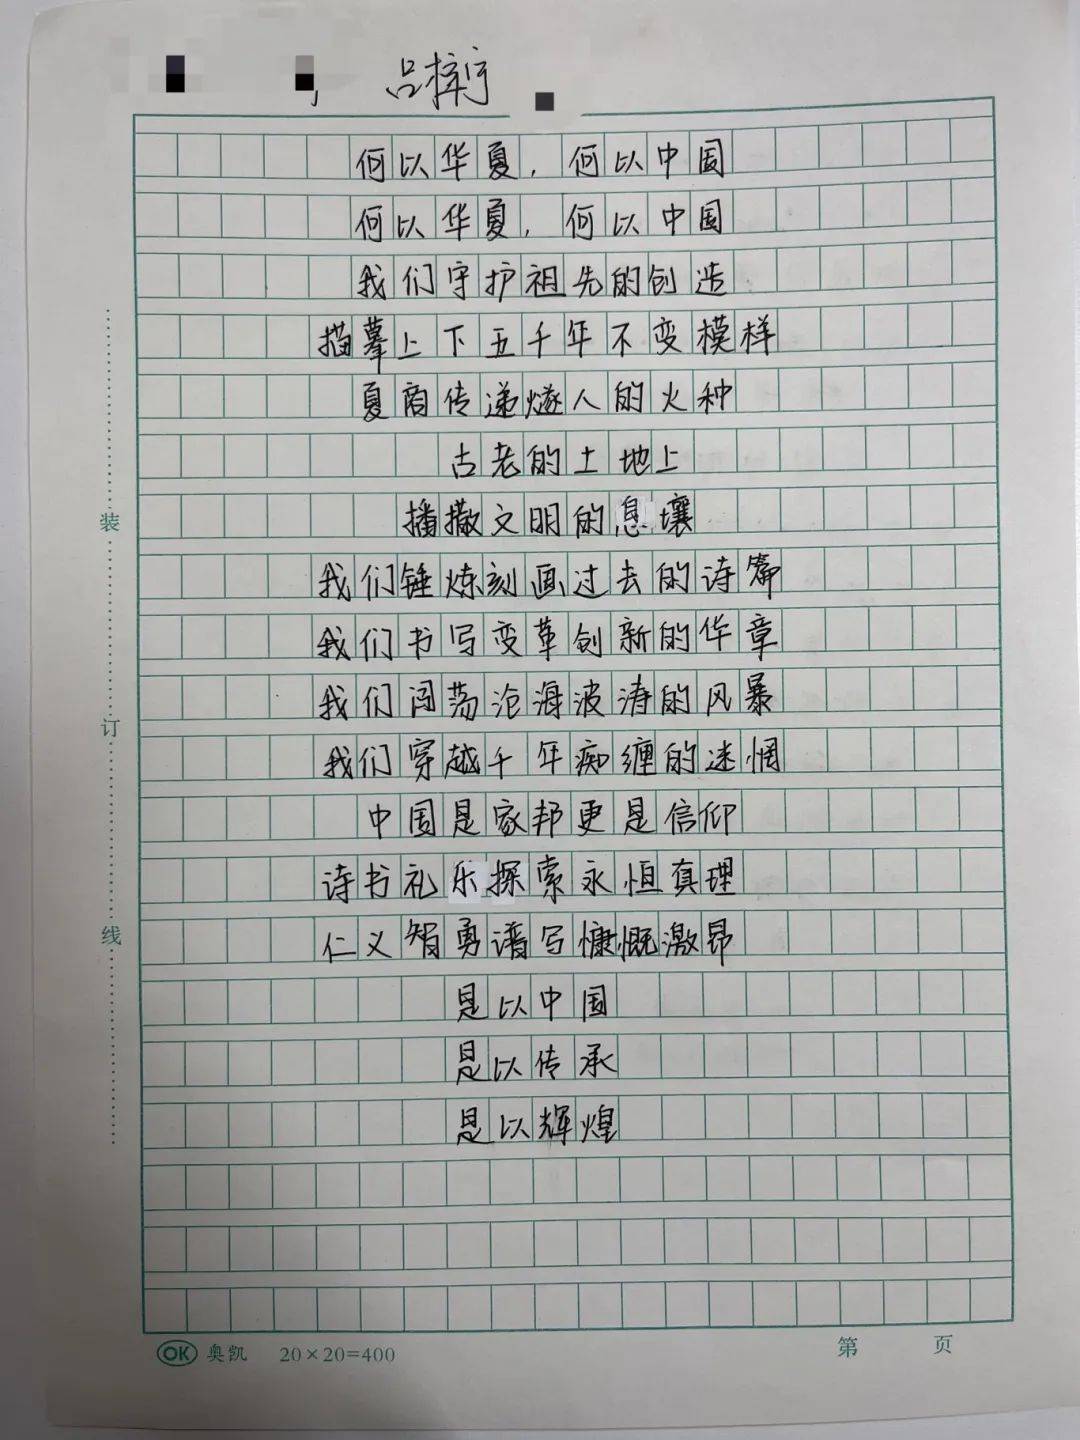 吕梓宁
何以华夏，何以中国
何以华夏，何以中国
我们守护祖先的创造
描摹上下五千年不变模样
夏商传递燧人的火种
古老的土地上
播撒文明的息壤
我们锤炼刻画过去的诗篇
我们书写变革创新的华章
我们闯荡沧海波涛的风暴
我们穿越千年痴缠的迷惘
中国是家邦更是信仰
诗书礼乐探索永恒真理
仁义智勇谱写慷慨激昂
是以中国
是以传承
是以辉煌
装
订
线
OK 奥凯 20×20=400
第 页